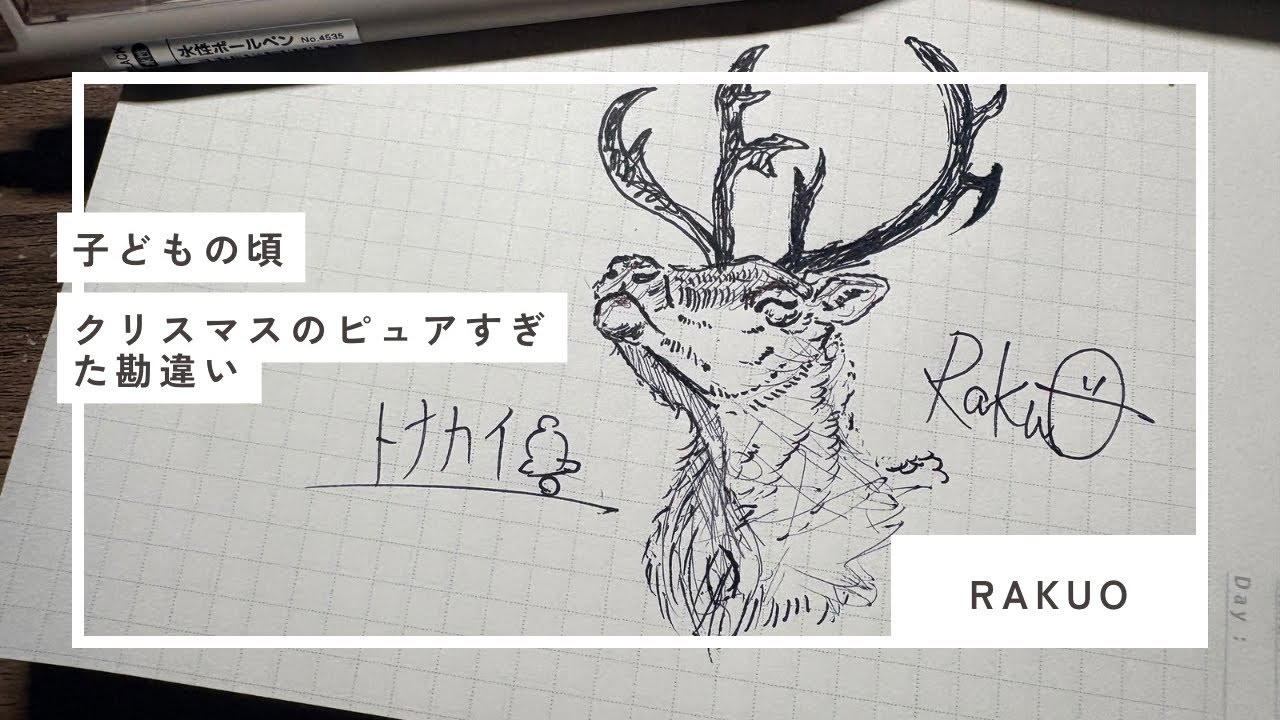 BLACK
水性ボールペン No.4535
子どもの頃
クリスマスのピュアすぎ
た勘違い
トナカイ
RakuO
RAKUO
Day :